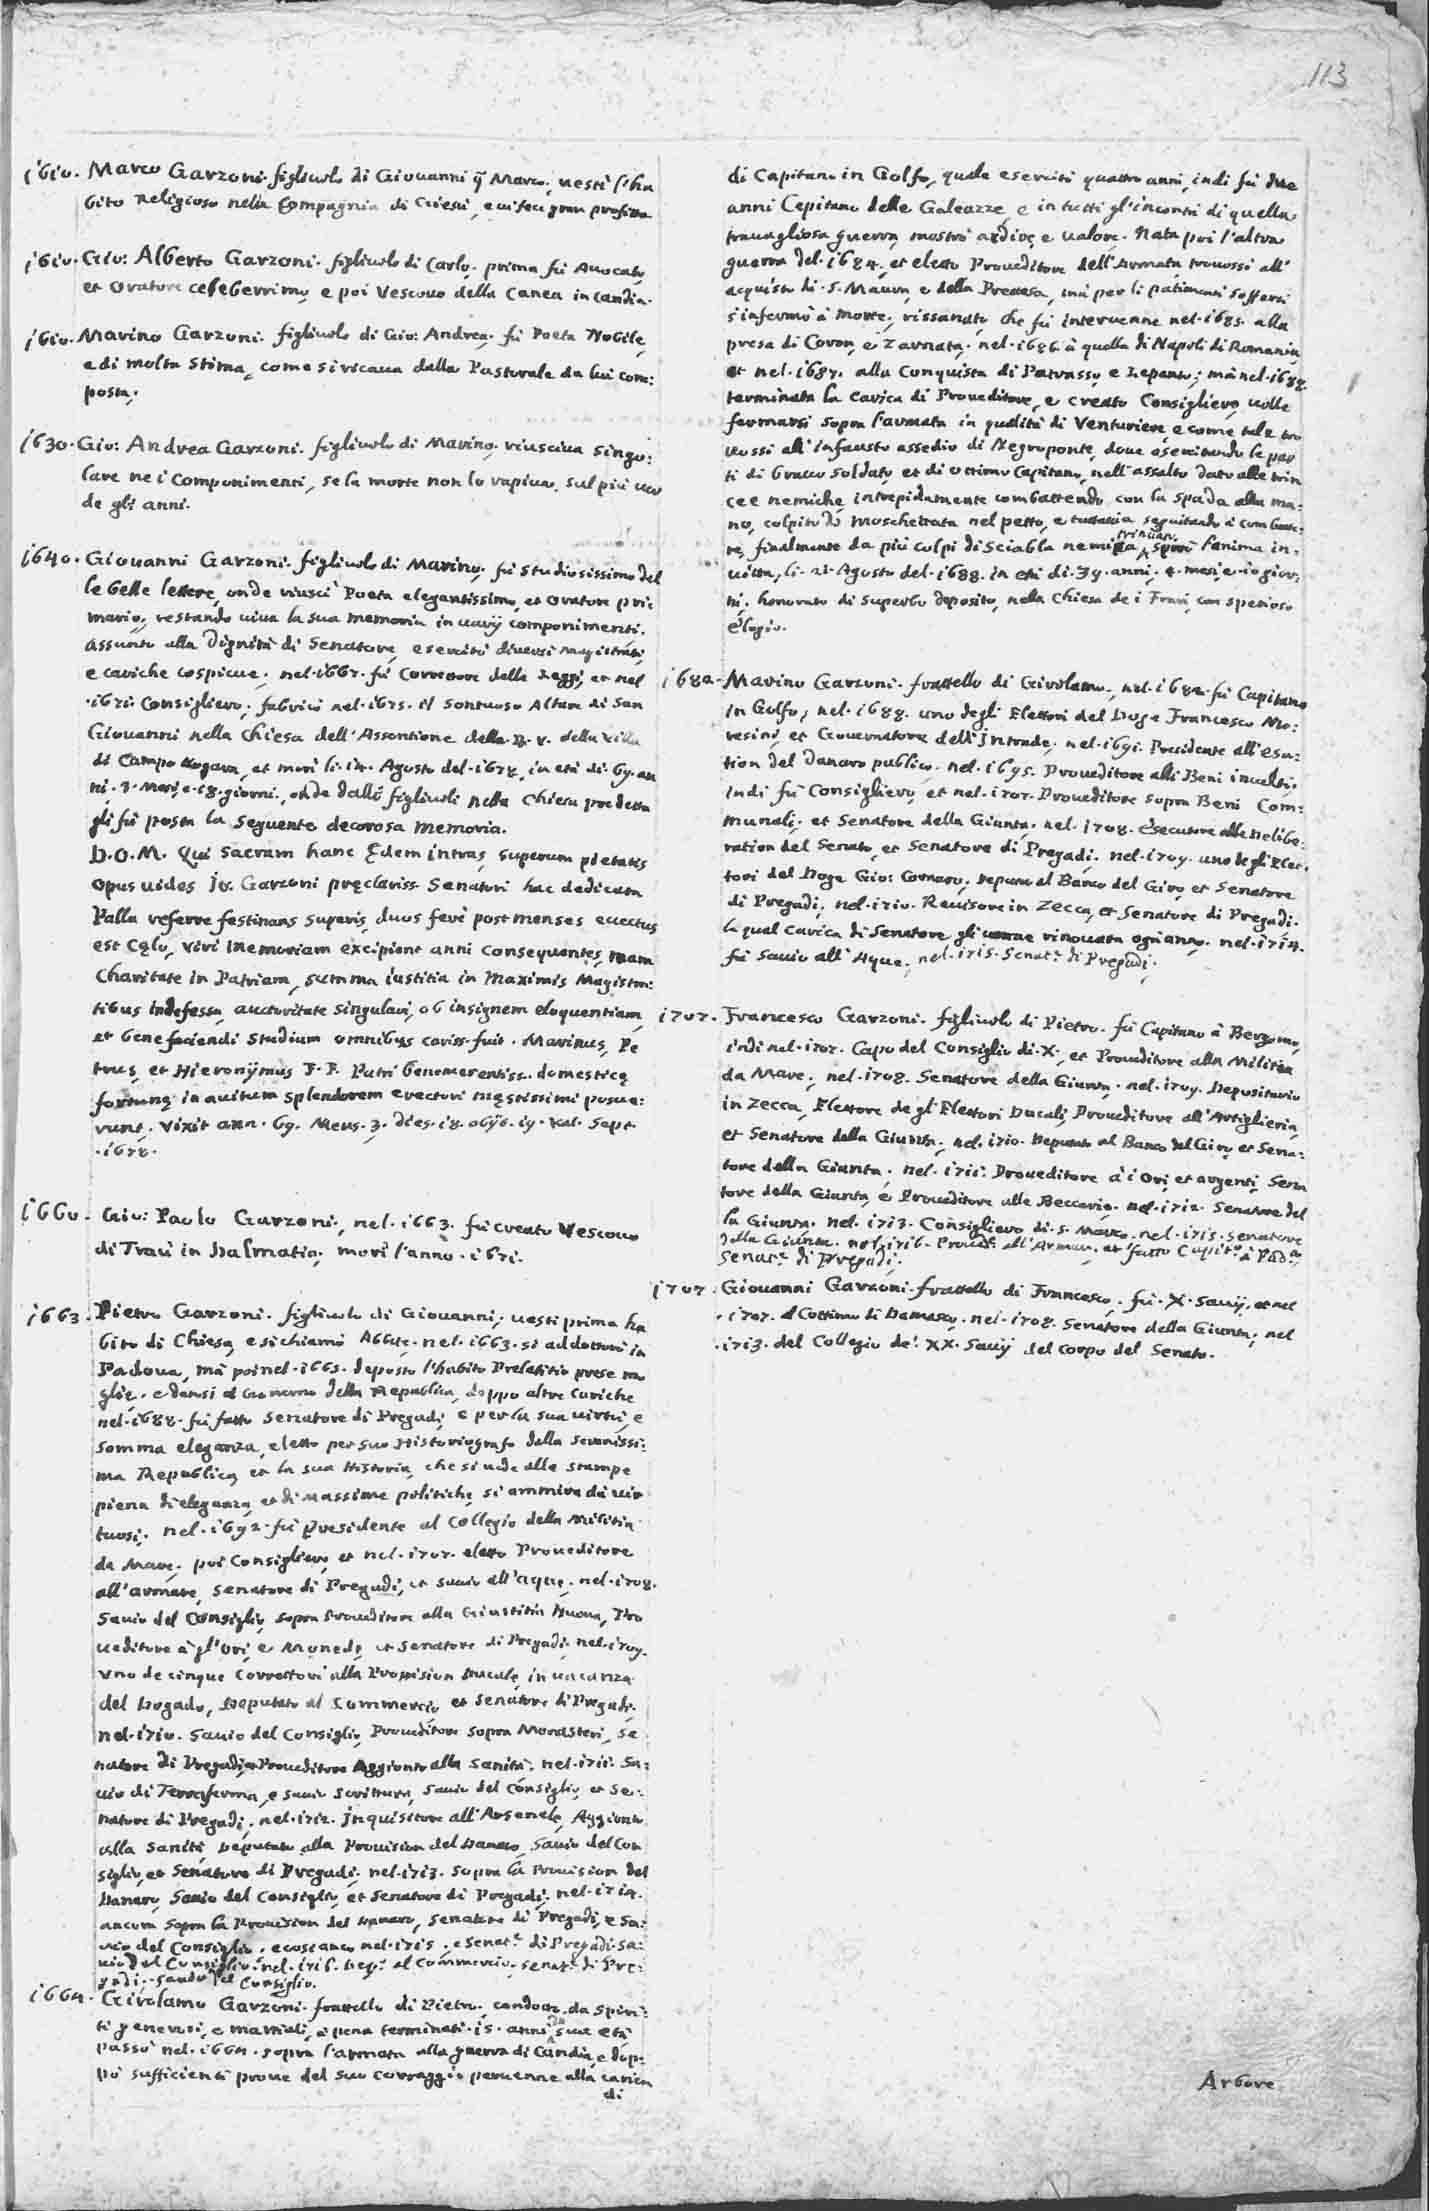 113
1610. Marco Garzoni. figliuolo di Giouanni q̃ Marco, uestì l'ha
bito Religioso nella Compagnia di Giesù, e ui fece gran profitto.
1610. Gio: Alberto Garzoni. figliuolo di Carlo. prima fù Auocato,
et Oratore celeberrimo, e poi Vescouo della Canea in Candia.
1610. Marino Garzoni. figliuolo di Gio: Andrea. fù Poeta Nobile,
e di molta stima, come si ricaua dalla Pastorale da lui com:
posta.
1630. Gio: Andrea Garzoni. figliuolo di Marino. riusciua singo:
lare ne i Componimenti, se la morte non lo rapiua, sul più
de gli anni.
1640. Giouanni Garzoni. figliuolo di Marino. fù studiosissimo del
le belle lettere, onde riuscì Poeta elegantissimo, et Oratore pri:
mario, restando uiua la sua memoria in uarij componimenti.
Assunto alla Dignità di Senatore, esercitò diuersi Magistrati,
e cariche cospicue. nel. 1667. fù Correttore delle Leggi, et nel
. 1671. Consigliero. fabricò nel. 1675. il sontuoso Altare di San
Giouanni nella Chiesa dell'Assontione della B. V. della Villa
di Campo Nogara, et morì li. 14. Agosto del. 1678, in età di. 69. an
ni. 3. Mesi, e. 18. giorni, onde dalli figliuoli nella Chiesa predetta
gli fù posta la seguente decorosa memoria.
D. O. M. Qui sacram hanc Ędem intras, superum pietatis
opus uides Jo. Garzoni pręclariss. Senatori hac dedicata
Palla referre festinans superis, duos ferè post menses euectus
est Cęlo, viri memoriam excipient anni consequentes, nam
Charitate in Patriam, summa iustitia in Maximis Magistra:
tibus indefessa, auctoritate singulari, ob insignem eloquentiam,
et benefaciendi studium omnibus cariss. fuit. Marinus, Pe
trus, et Hieronymus F. F. Patri benemerentiss. domesticę
fortunę in auitum splendorem euectori męstissimi posue:
runt. Vixit ann. 69. Mens. 3. dies. 18. obijt. 19. Kal. Sept.
. 1678.
1660. Gio: Paolo Garzoni, nel. 1663. fù creato Vescouo
di Traù in Dalmatia. morì l'anno. 1671.
1663. Pietro Garzoni. figliuolo di Giouanni, uestì prima ha
bito di Chiesa, e si chiamò Abbate. nel. 1663. si addottorò in
Padoua, mà poi nel. 1665. deposto l'habito Prelatitio prese mo
glie. e datosi al Gouerno della Republica, doppo altre cariche
nel. 1688. fù fatto Senatore di Pregadi, e per la sua uirtù, e
somma eleganza, eletto per suo Historiografo della Serenissi:
ma Republica, et la sua Historia, che si uede alle stampe
piena di eleganza, et di Massime politiche, si ammira da uir
tuosi. nel. 1692. fù Presidente al Collegio della Militia
da Mare, poi Consigliero, et nel. 1707. eletto Proueditore
all'armare, Senatore di Pregadi, et Sauio all'Aque. nel. 1708.
Sauio del Consiglio, sopra Proueditore alla Giustitia Nuoua, Pro
ueditore à gl'Ori, e Monede, et Senatore di Pregadi. nel. 1709.
Vno de cinque Correttori alla Promission Ducale, in uacanza
del Dogado, Deputato al Commercio, et Senatore di Pregadi.
nel. 1710. Sauio del Consiglio, Proueditore sopra Monasteri, Se
natore di Pregadi, e Proueditore Aggionto alla Sanità. nel. 1711. Sa:
uio di Terraferma, e Sauio Scrittura, Sauio del Consiglio, et Se:
natore di Pregadi. nel. 1712. Inquisitore all'Arsenale, Aggionto
alla Sanità, Deputato alla Prouision del Danaro, Sauio del Con
siglio, et Senatore di Pregadi. nel. 1713. sopra la Prouision del
Danaro, Sauio del Consiglio, et Senatore di Pregadi. nel. 1714.
ancora sopra la Prouision del Danaro, Senatore di Pregadi, e Sa:
uio del Consiglio. e nel. 1715. e Senat.e di Pregadi. Sa:
uio del Consiglio. nel. 1716. Dep.o al Commercio. Senat.e di Pre:
gadi. Sauio del Consiglio.
1664. Girolamo Garzoni. frattello di Pietro. condotto da Spiri:
ti generosi, e martiali, à pena terminati. 15. anni di sua età
passò nel. 1664. sopra l'armata alla guerra di Candia, e dop:
pò sufficienti proue del suo corraggio peruenne alla carica
di
di Capitano in Golfo, quale esercitò quattro anni, indi fù due
anni Capitano delle Galeazze, e in tutti gl'incontri di quella
trauagliosa guerra, mostrò ardire, e ualore. Nata poi l'altra
guerra del. 1684. et eletto Proueditore dell'Armata, trouossi all'
acquisto di. S. Maura, e della Preuesa, mà per li patimenti sofferti
s'infermò à morte, rissanato, che fù interuenne nel. 1685. alla
presa di Coron, e Zarnata. nel. 1686. à quella di Napoli di Romania,
et nel. 1687. alla Conquista di Patrasso, e Lepanto; mà nel. 1688.
terminata la Carica di Proueditore, e creato Consigliero, uolle
fermarsi sopra l'armata in qualità di Venturiere, e come tale tro
uossi all'infausto assedio di Negroponte, doue esercitando le par
ti di brauo soldato, et di ottimo Capitano, nell'assalto dato alle trin
cee nemiche, intrepidamente combattendo con la spada alla ma:
no, colpito di Moschettata nel petto, e tuttauia seguitando à combatte:
re, finalmente da più colpi di Sciabla nemica trincato spirò l'anima in:
uitta, li. 21. Agosto del. 1688. in età di. 39. anni. 4. mesi, e. 10 gior:
ni. honorato di superbo deposito, nella Chiesa de i Frari, con spetioso
elogio.
1682. Marino Garzoni. frattello di Girolamo. nel. 1682. fù Capitano
in Golfo, nel. 1688. uno degli Elettori del Doge Francesco Mo:
resini, et Gouernatore dell'Intrade, nel. 1691. Presidente all'esa:
tion del Danaro publico. nel. 1695. Proueditore alli Beni inculti.
Indi fù Consigliero, et nel. 1707. Proueditore sopra Beni Com:
munali, et Senatore della Gionta. nel. 1708. Esecutore alle Delibe:
ration del Senato, et Senatore di Pregadi. nel. 1709. uno degli Elet:
tori del Doge Gio: Cornaro, Deputa al Banco del Giro, et Senatore
di Pregadi, nel. 1710. Reuisore in Zecca, et Senatore di Pregadi.
la qual Carica di Senatore gli uenne rinouata ogn'anno. nel. 1714.
fù Sauio all'Aque, nel. 1715. Senat.e di Pregadi.
1707. Francesco Garzoni. figliuolo di Pietro. fù Capitano à Bergamo,
indi nel. 1707. Capo del Consiglio di. X. et Proueditore alla Militia
da Mare. nel. 1708. Senatore della Gionta. nel. 1709. Depositario
in Zecca, Elettore de gl'Elettori Ducali, Proueditore all'Artiglieria,
et Senatore della Gionta. nel. 1710. Deputato al Banco del Giro, et Sena:
tore della Giunta. nel. 1711. Proueditore à i Ori, et argenti, Sena
tore della Giunta, e Proueditore alle Beccarie. nel. 1712. Senatore del
la Giunta. nel. 1713. Consigliero di. S. Marco. nel. 1715. Senatore
della Giunta. nel. 1716. Proued. all'Armar. et fatto Capit.o à Pad.a
Senat.e di Pregadi.
1707. Giouanni Garzoni. frattello di Francesco, fù. X. Sauij, et nel
. 1707. al Cottimo di Damasco. nel. 1708. Senatore della Gionta, nel
. 1713. del Collegio de'. XX. Sauij del corpo del Senato.
Arbore